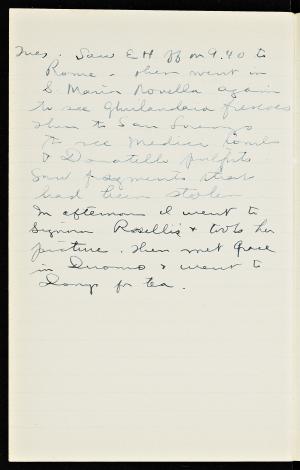 Tues. Saw E H off on 9.40 to
Rome - then went in
S. Maria Novella again
to see Ghirlandara frescoes
then to San Lorenzo
to see Medici tombs
& Donatello pulpits
Saw fragments that
had been stolen
In afternoon I went to
Signora Roselli's & took her
picture. Then met Grace
in Duomo & went to
for tea.